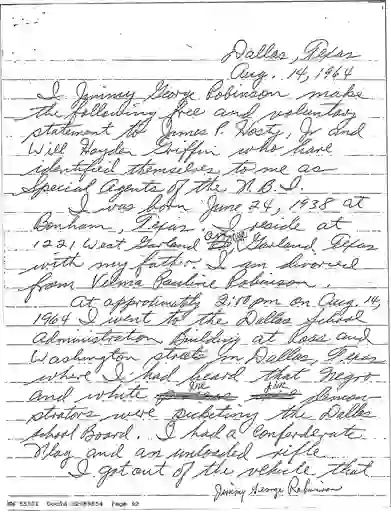 Dallas, Texas
Aug. 14, 1964
I Jimmy George Robinson make
the following free and voluntary
statement to James P. Hosty, Jr and
Will Hayden Griffin who have
identified themselves to me as
Special Agents of the F.B.I.
I was born June 24, 1938 at
Bonham, Texas. I reside at
1221 West Garland Garland, Texas
with my father. I am divorced
from Velma Pauline Robinson.
At approximatly 2:00 pm on Aug. 14,
1964 I went to the Dallas School
Administration Building at Ross and
Washington streets in Dallas, Texas
where I had heard that Negro
and white demon
strators were picketing the Dallas
school Board. I had a Confederate
Flag and an unloaded rifle.
I got out of the vehicle that
Jimmy George Robinson
Page 92